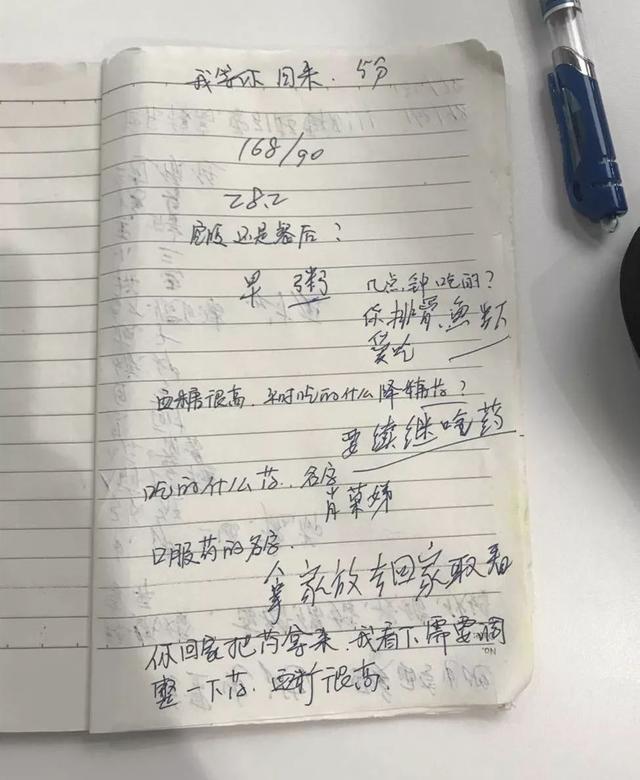 我等你回来. 5分
168/90
28.2
空腹还是餐后?
早 粥 几点钟吃的?
你排骨,鱼
爱吃
血糖很高.平时吃的什么降糖药?
要续继吃药
吃的什么药.名字
肖菓娣
口服药的名字.
拿家放去回家取看
你回家把药拿来.我看下需要调
整一下药.血糖很高.